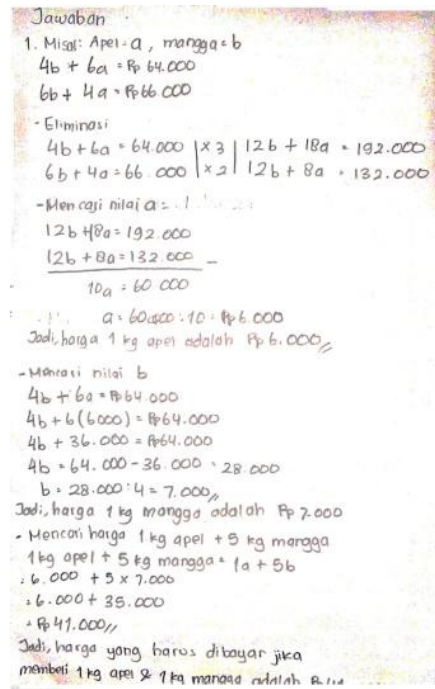 Jawaban
1. Misal: Apel = a, mangga = b
4b + 6a = Rp 64.000
6b + 4a = Rp 66 000
- Eliminasi
4b + 6a = 64.000 | x 3 | 12b + 18a = 192.000
6b + 4a = 66.000 | x 2 | 12b + 8a = 132.000
- Mencari nilai a =
12b + 18a = 192.000
12b + 8a = 132.000 -
10a = 60 000
a = 60.000 : 10 = Rp 6.000
Jadi, harga 1 kg apel adalah Rp 6.000,,
- Mencari nilai b
4b + 6a = Rp 64.000
4b + 6(6000) = Rp 64.000
4b + 36.000 = Rp 64.000
4b = 64.000 - 36.000 = 28.000
b = 28.000 : 4 = 7.000,,
Jadi, harga 1 kg mangga adalah Rp 7.000
- Mencari harga 1 kg apel + 5 kg mangga
1 kg apel + 5 kg mangga = 1a + 5b
= 6.000 + 5 x 7.000
= 6.000 + 35.000
= Rp 41.000//
Jadi, harga yang harus dibayar jika
membeli 1 kg apel & 1 kg mangga adalah